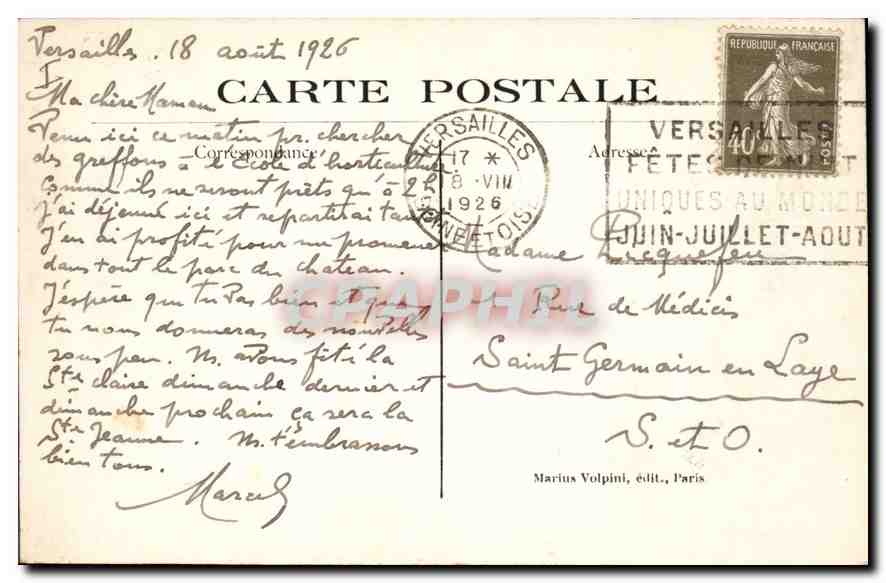 Versailles. 18 août 1926
CARTE POSTALE
Correspondance
Adresse
Ma chère Maman
Venu ici ce matin pr. chercher
des greffons à l'École d'horticulture
Comme ils ne seront prêts qu'à 2h
j'ai déjeuné ici et repartirai tantôt
J'en ai profité pour me promener
dans tout le parc du château.
J'espère que tu vas bien et que
tu nous donneras des nouvelles
sous peu. Ns. avons fêté la
Ste claire dimanche dernier et
dimanche prochain ça sera la
Ste Jeanne. Ns. t'embrassons
bien tous.
Marcel
REPUBLIQUE FRANÇAISE
40c
POSTES
VERSAILLES
17 *
18 · VIII
1926
SEINE ET OISE
VERSAILLES
FÊTES DE NUIT
UNIQUES AU MONDE
JUIN-JUILLET-AOUT
Madame
Rue de Médicis
Saint Germain en Laye
S. et O.
Marius Volpini, édit., Paris
CPAPHIL